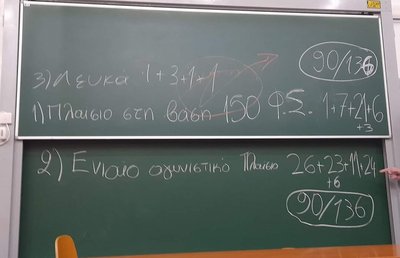 90/136
3) Λευκά 1+3+1+1
1) Πλαίσιο στη βάση 150 Φ.Σ. 1+7+21+6
+3
2) Ενιαιο αγωνιστικό Πλαίσιο 26+23+11+24
+6
90/136